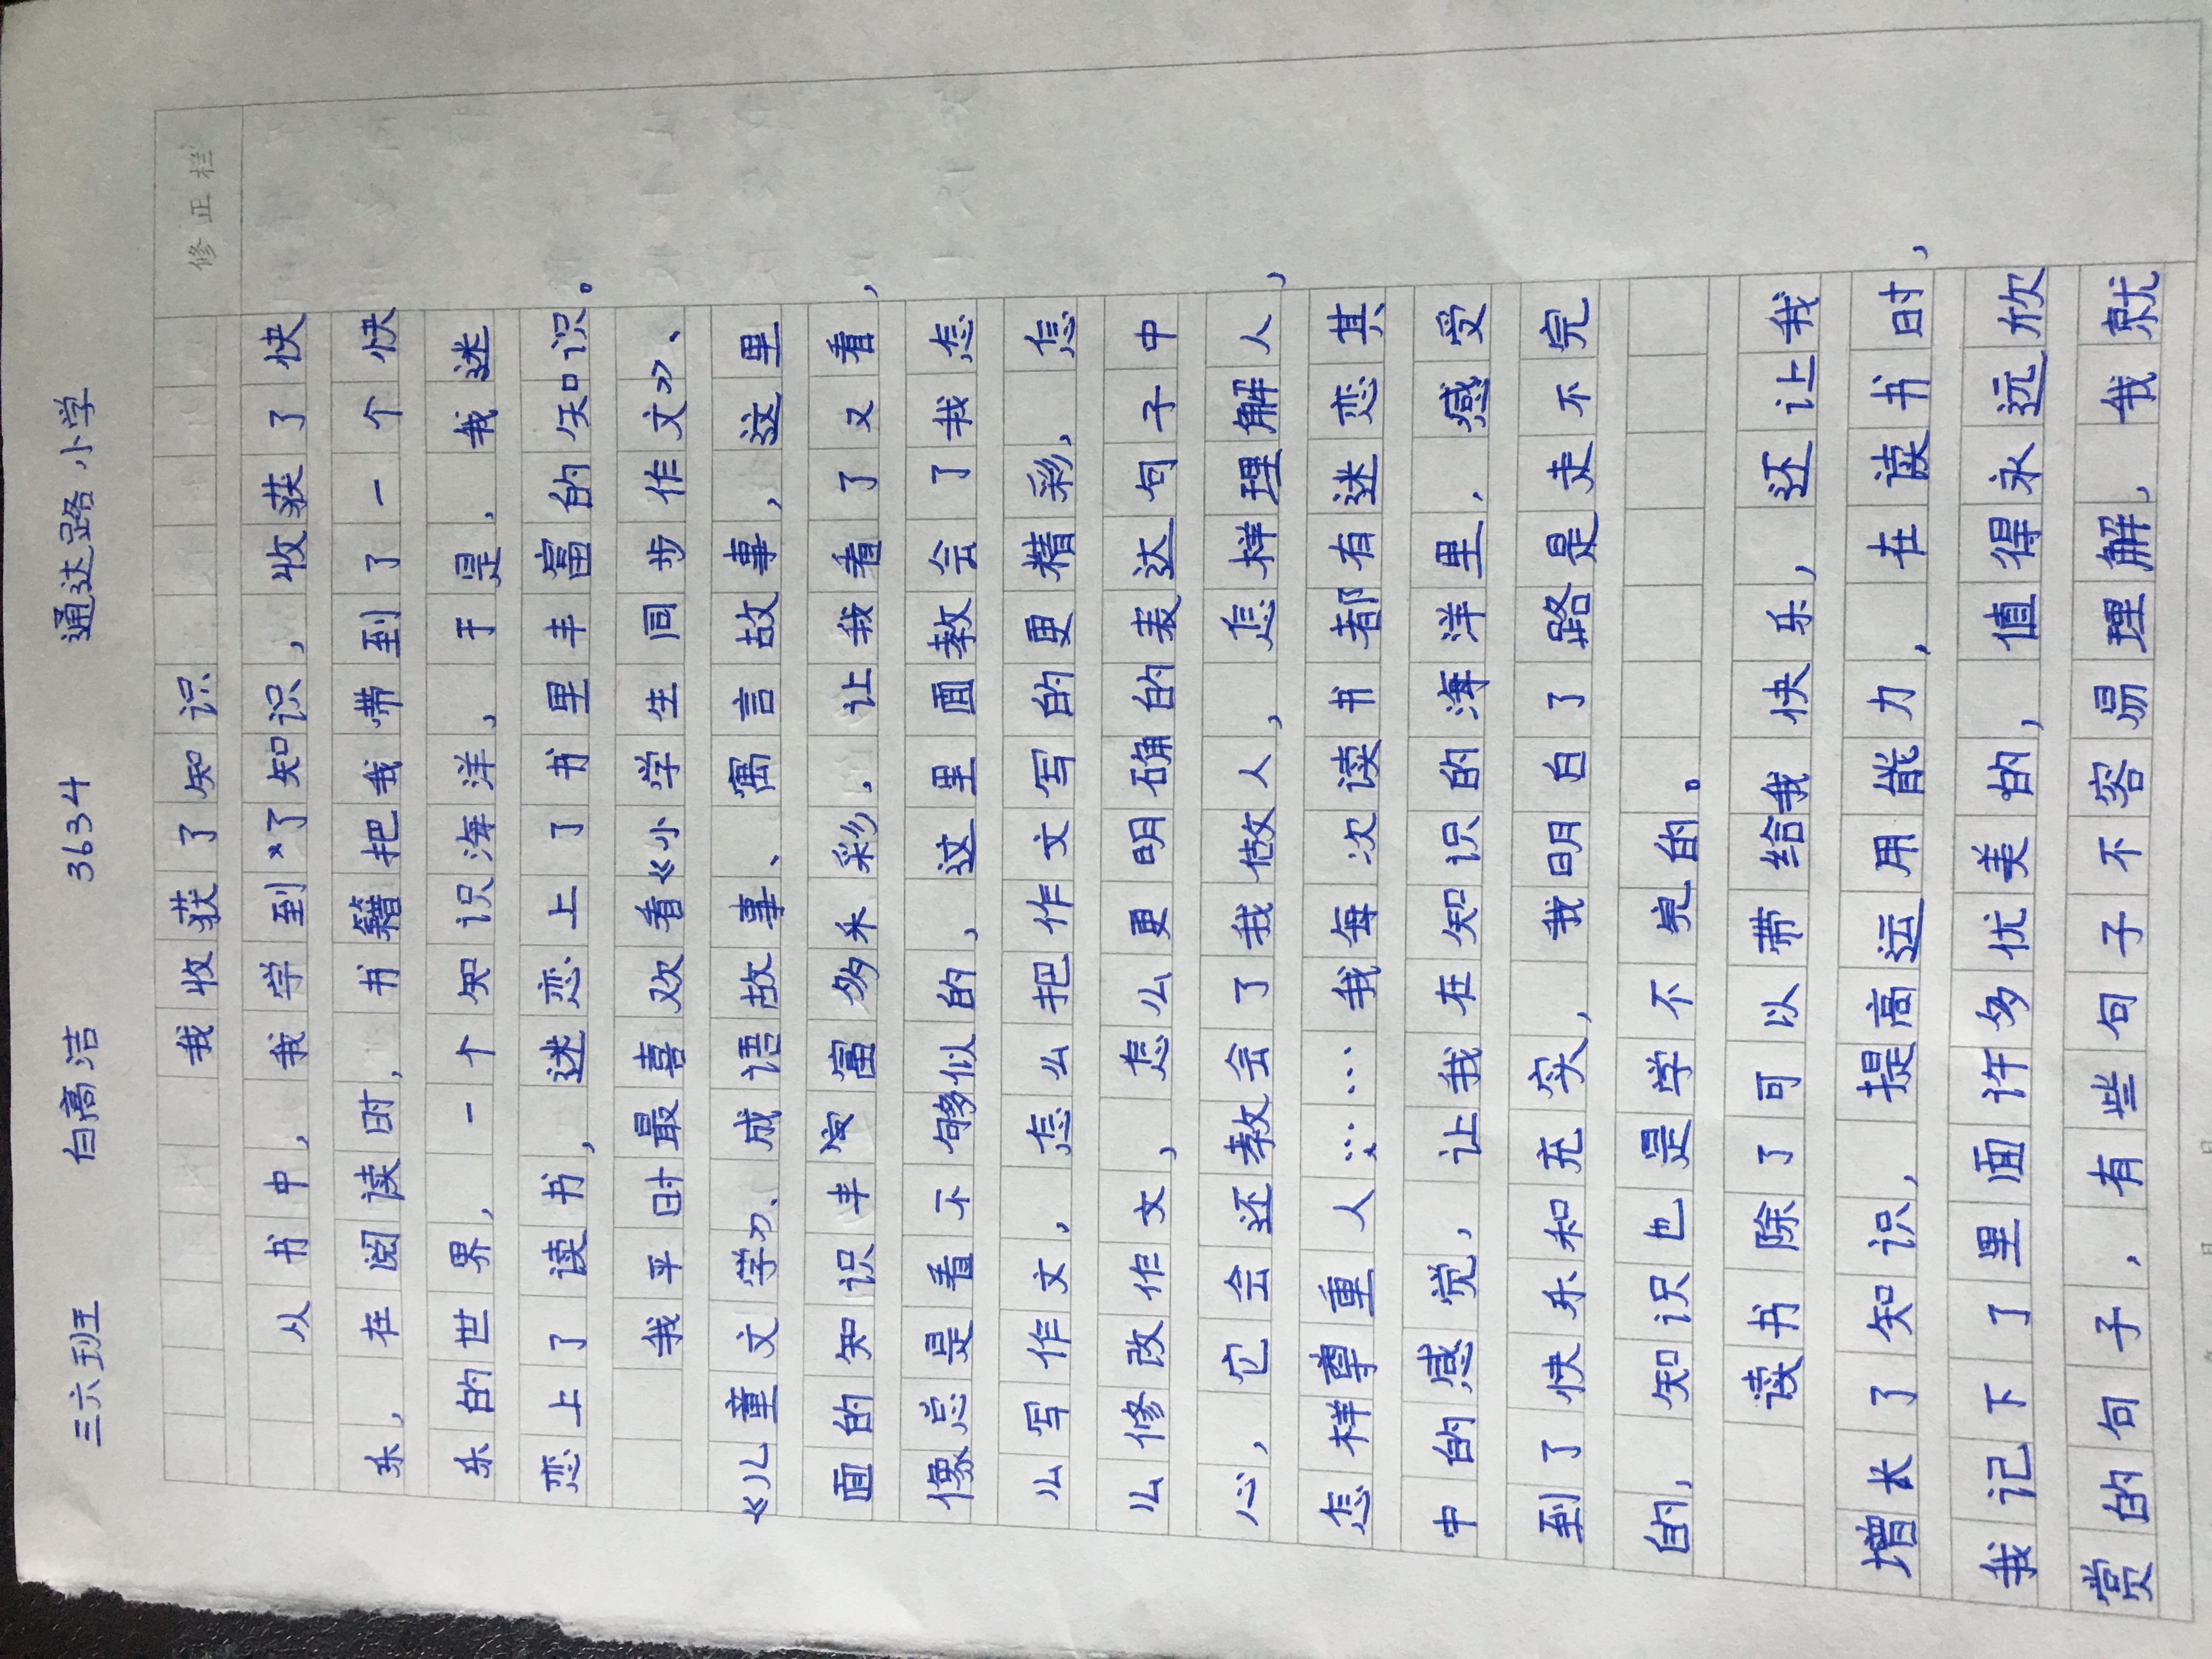 三六班 白高洁 3634 通达路小学
修正栏
我收获了知识
从书中，我学到了知识，收获了快
乐，在阅读时，书籍把我带到了一个快
乐的世界，一个知识海洋，于是，我迷
恋上了读书，迷恋上了书里丰富的知识。
我平时最喜欢看《小学生同步作文》、
《儿童文学》、成语故事、寓言故事，这里
面的知识丰富多采彩，让我看了又看，
像总是看不够似的，这里面教会了我怎
么写作文，怎么把作文写的更精彩，怎
么修改作文，怎么更明确的表达句子中
心，它会还教会了我做人，怎样理解人，
怎样尊重人……我每次读书都有迷恋其
中的感觉，让我在知识的海洋里，感受
到了快乐和充实，我明白了路是走不完
的，知识也是学不完的。
读书除了可以带给我快乐，还让我
增长了知识，提高运用能力，在读书时，
我记下了里面许多优美的，值得永远欣
赏的句子，有些句子不容易理解，我就